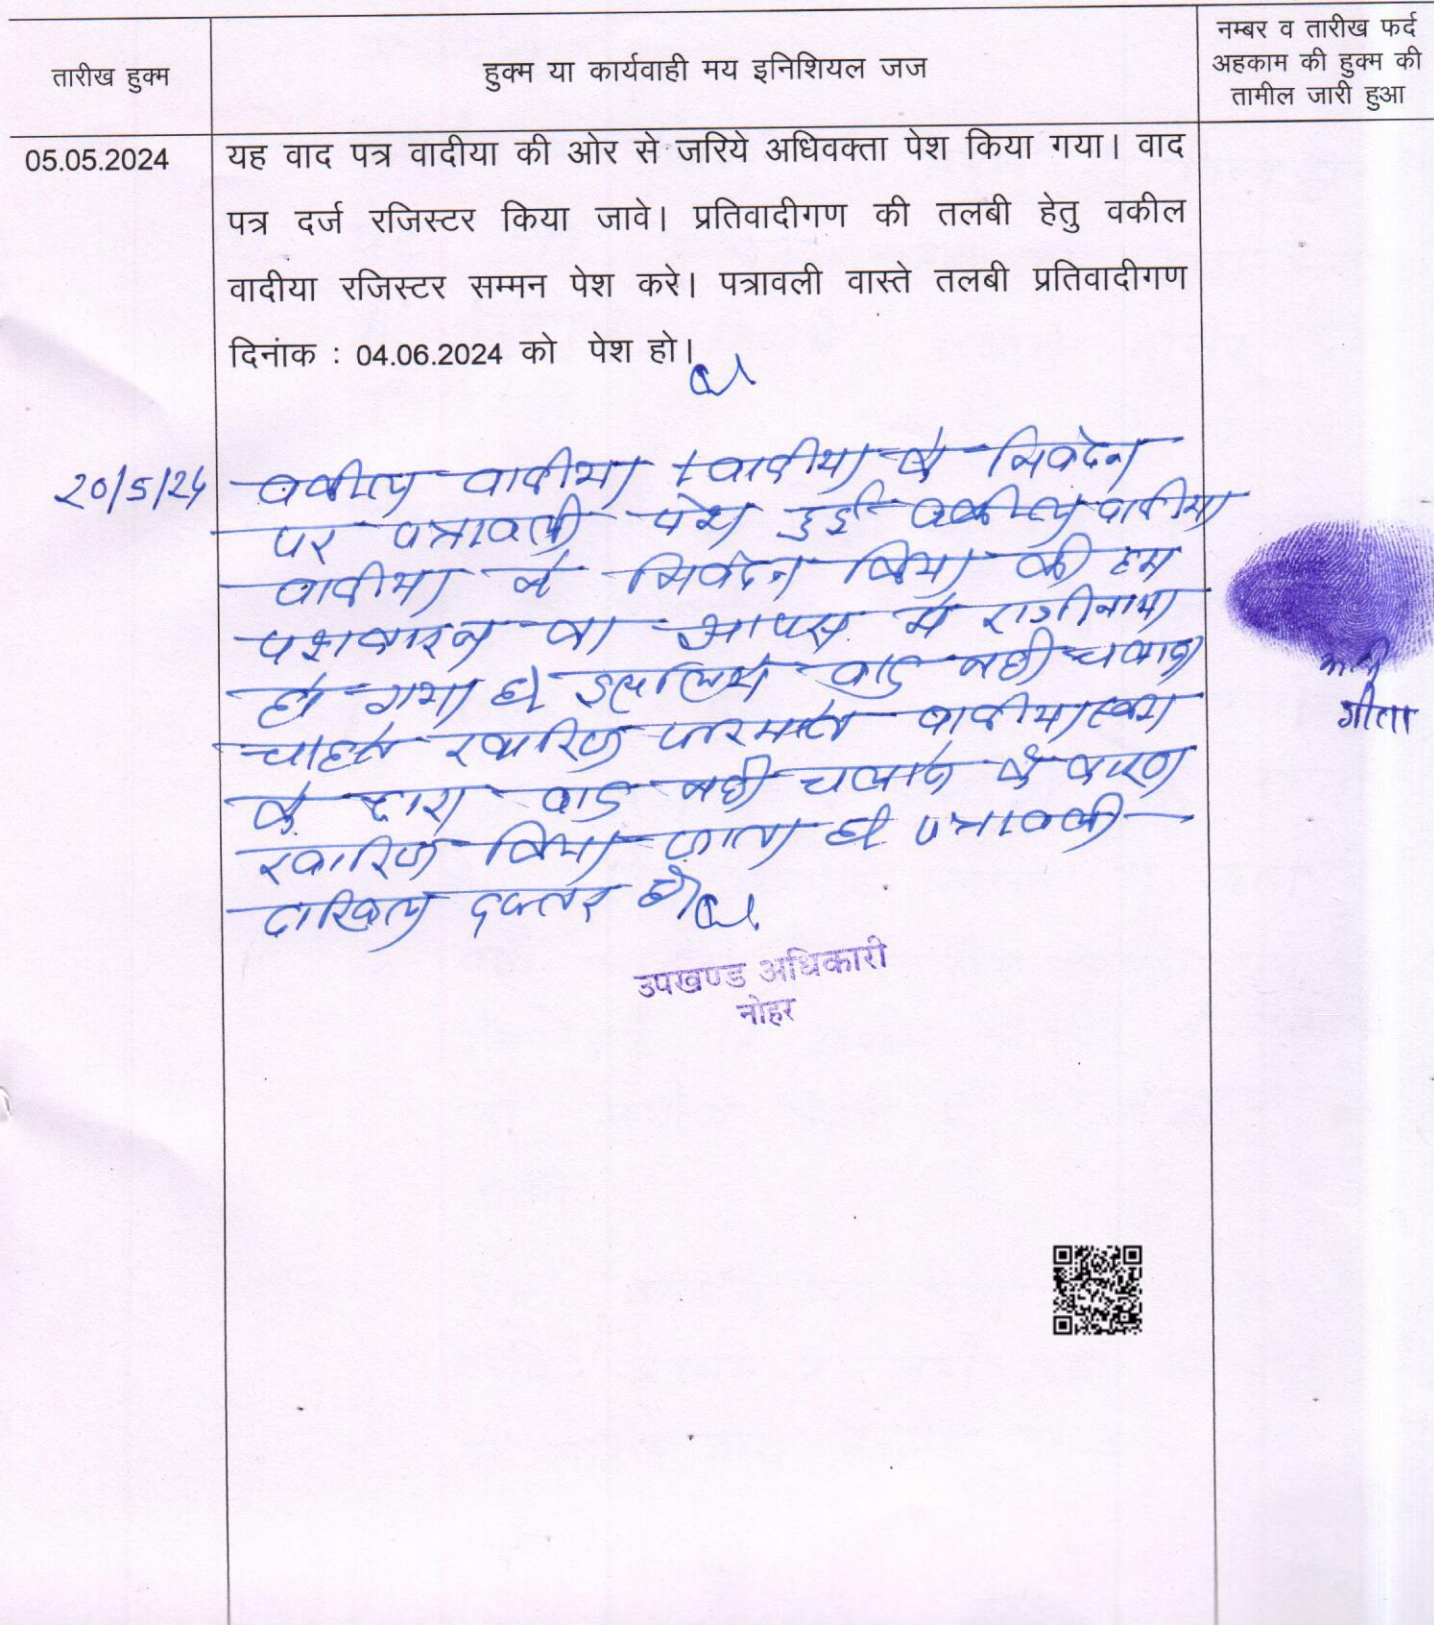 तारीख हुक्म
हुक्म या कार्यवाही मय इनिशियल जज
नम्बर व तारीख फर्द
अहकाम की हुक्म की
तामील जारी हुआ
05.05.2024
यह वाद पत्र वादीया की ओर से जरिये अधिवक्ता पेश किया गया। वाद
पत्र दर्ज रजिस्टर किया जावे। प्रतिवादीगण की तलबी हेतु वकील
वादीया रजिस्टर सम्मन पेश करे। पत्रावली वास्ते तलबी प्रतिवादीगण
दिनांक : 04.06.2024 को पेश हो।
20/5/24
वकील वादीया । वादीया के निवेदन
पर पत्रावली पेश हुई वकील वादीया
वादीया ने निवेदन किया की हम
पक्षकारन का आपस में राजीनामा
हो गया है इसलिये वाद नही चलाना
चाहते खारिज फरमावे वादीया स्वयं
के द्वारा वाद नही चलाने के कारण
खारिज किया जाता है पत्रावली
दाखिल दफ्तर हो
गीता
उपखण्ड अधिकारी
नोहर